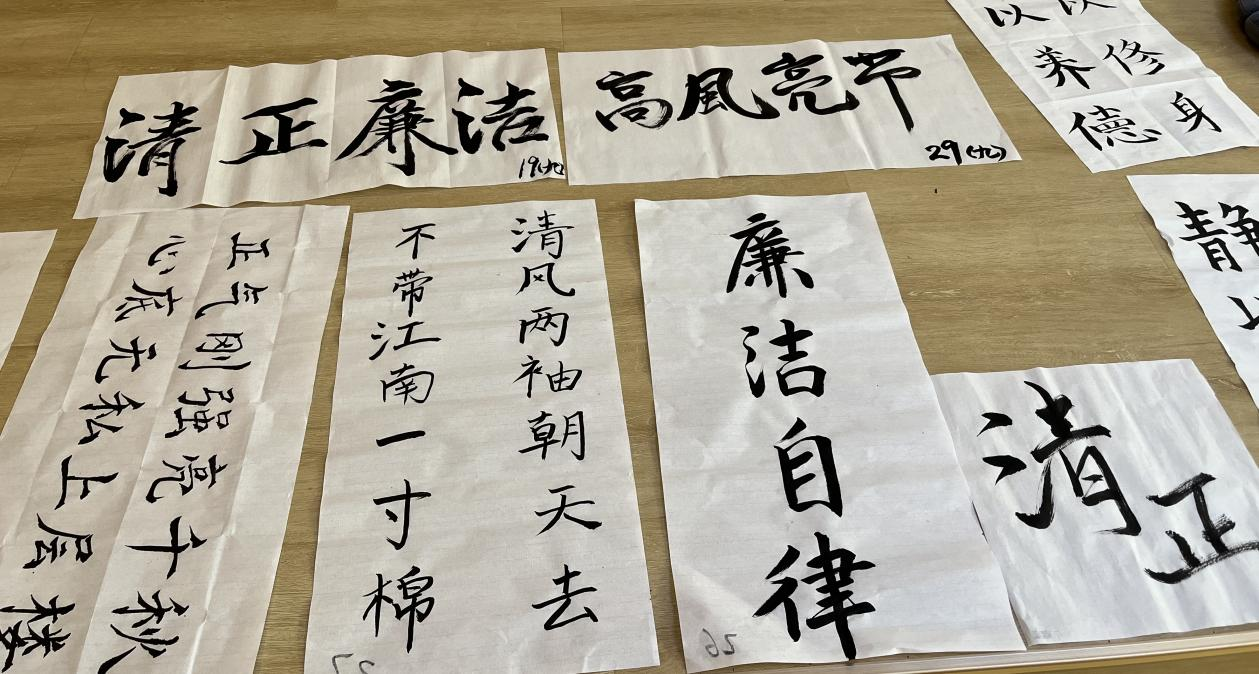 清正廉洁
19(九)
高風亮节
29(九)
以修身
以养德
正气刚强亮千秋
心底无私上层楼
清风两袖朝天去
不带江南一寸棉
27
廉洁自律
26
清正
静